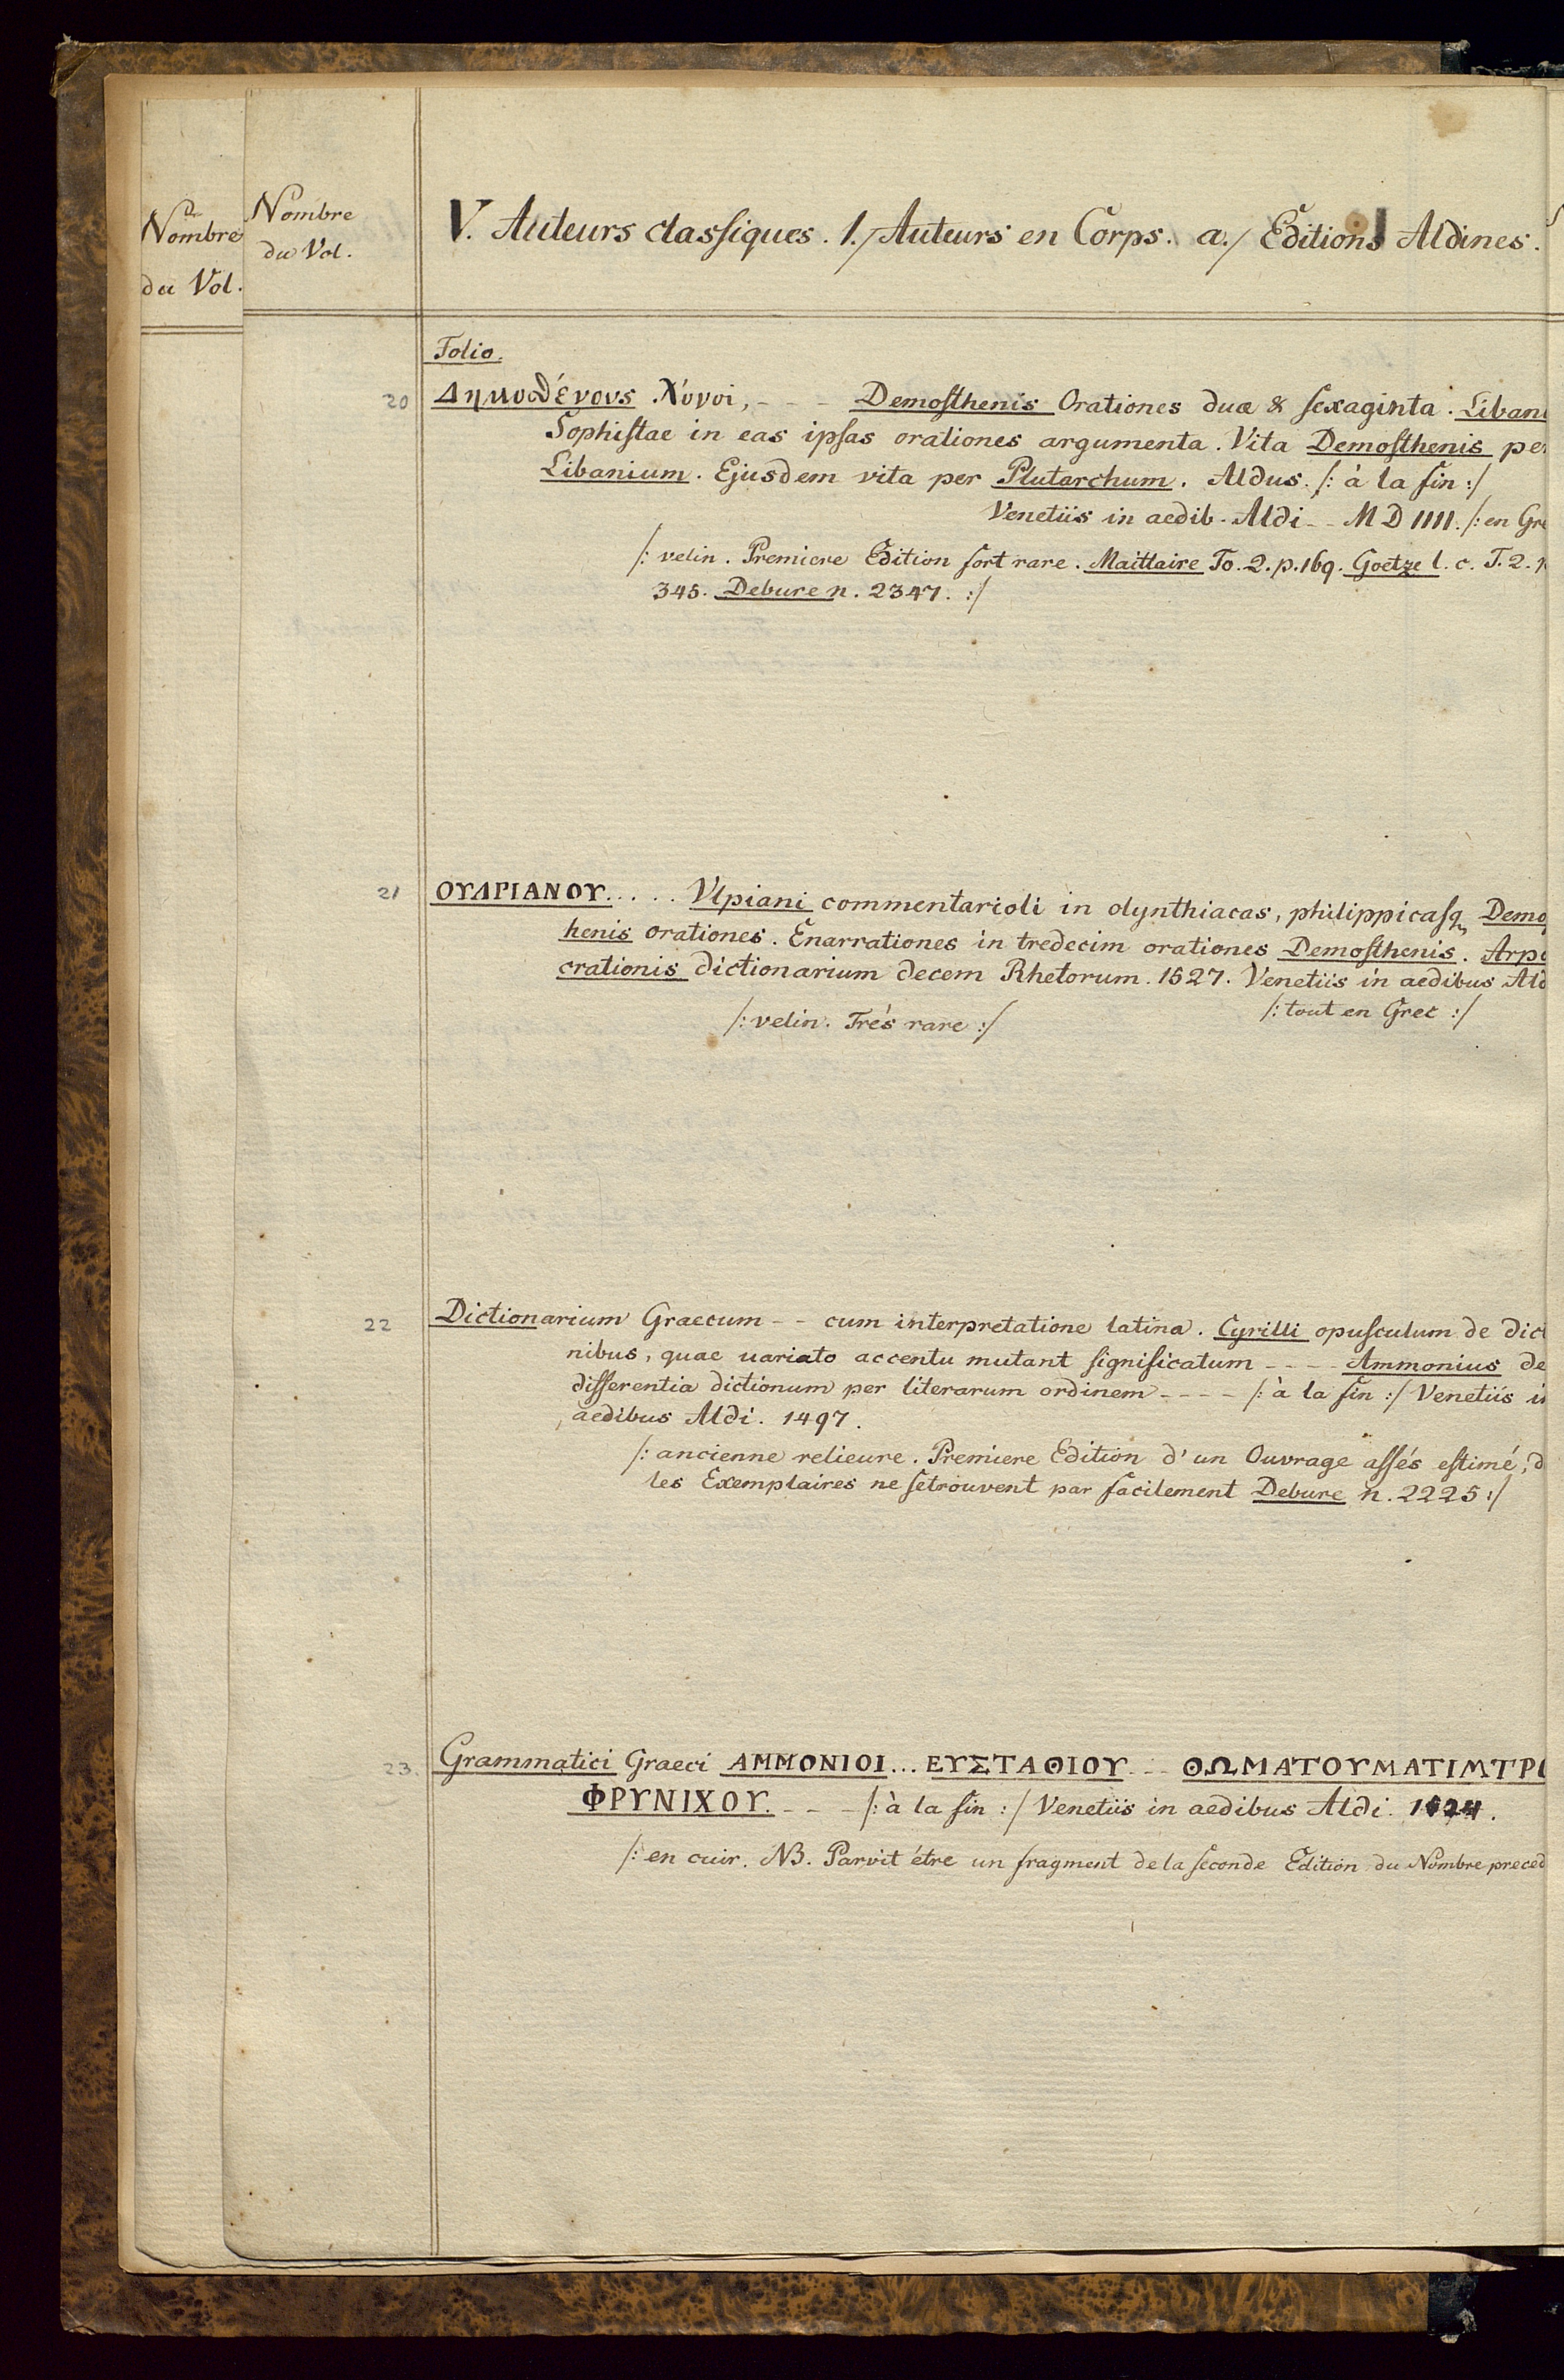 Nombre
du Vol.
Nombre
du Vol.
V. Auteurs classiques. 1./ Auteurs en Corps. a./ Editions Aldines.
Folio.
20 Δημοσθένους λόγοι, - - - Demosthenis Orationes duæ & sexaginta. Libani
Sophistae in eas ipsas orationes argumenta. Vita Demosthenis pe
Libanium. Ejusdem vita per Plutarchum. Aldus. /: à la fin :/
Venetiis in aedib. Aldi - - M D IIII. /: en Gre
/: velin. Premiere Edition fort rare. Maittaire To. 2. p. 169. Goetze l. c. T. 2.
345. Debure n. 2347. :/
21 ΟΥΛΠΙΑΝΟΥ. . . . . Ulpiani commentarioli in olynthiacas, philippicasq Demos
henis orationes. Enarrationes in tredecim orationes Demosthenis. Arpo
crationis dictionarium decem Rhetorum. 1527. Venetiis in aedibus Ald
/: tout en Grec :/
/: velin. Trés rare :/
22 Dictionarium Graecum - - cum interpretatione latina. Cyrilli opusculum de dict
nibus, quae uariato accentu mutant significatum - - - - Ammonius de
differentia dictionum per literarum ordinem - - - - /: à la fin :/ Venetiis in
aedibus Aldi. 1497.
/: ancienne relieure. Premiere Edition d'un Ouvrage assés estimé, d
les Exemplaires ne setrouvent par facilement Debure n. 2225 :/
23. Grammatici Graeci ΑΜΜΟΝΙΟΙ... ΕΥΣΤΑΘΙΟΥ. - - ΘΩΜΑΤΟΥΜΑΤΙΜΤΡΟ
ΦΡΥΝΙΧΟΥ. - - - /: à la fin :/ Venetiis in aedibus Aldi. 1524.
/: en cuir. NB. Paroit étre un fragment de la seconde Edition du Nombre preced